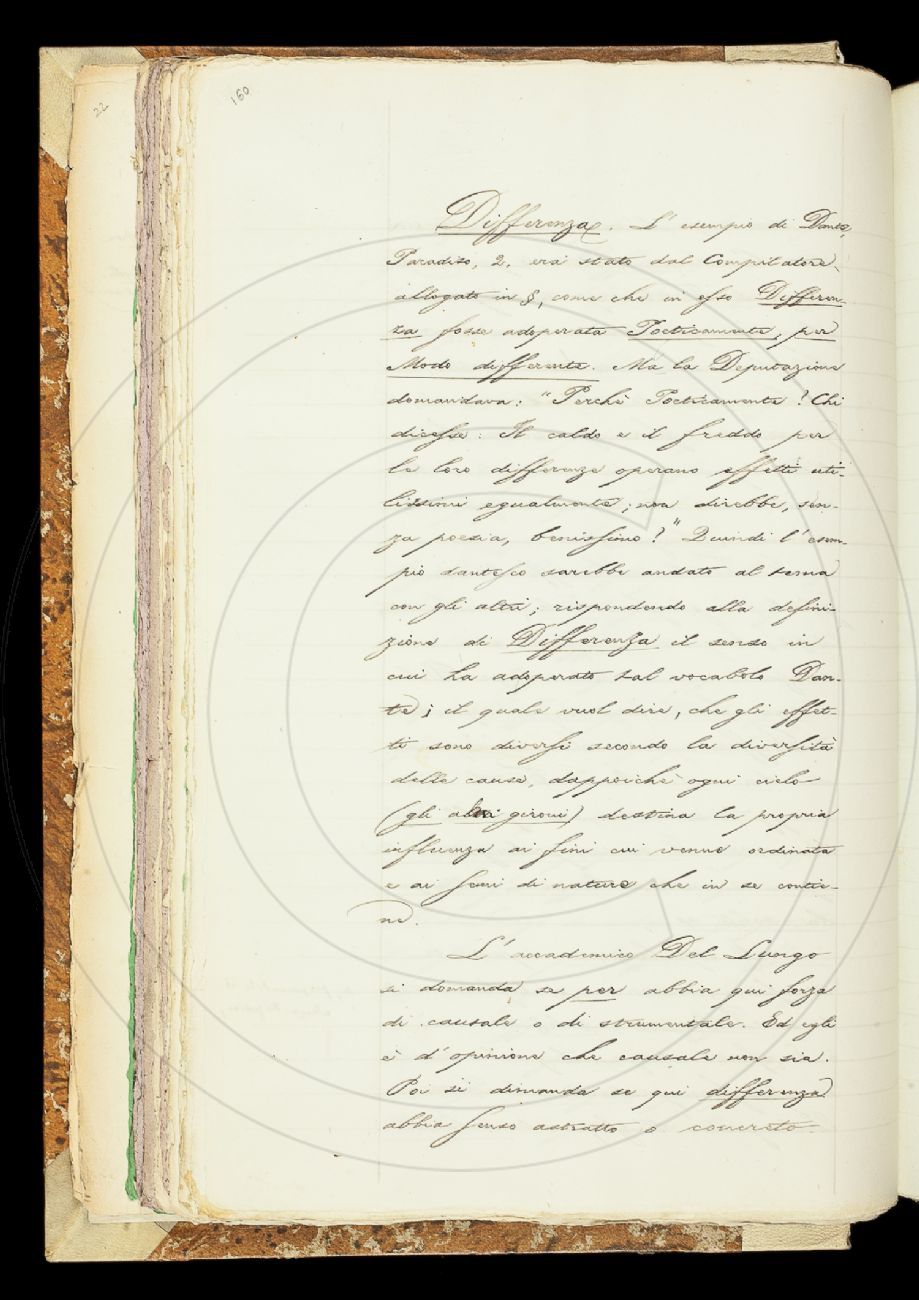 22
160
Differenza. L'esempio di Dante,
Paradiso, 2. era stato dal Compilatore
allogato in §, come che in esso Differen-
za fosse adoperata Poeticamente, per
Modo differente. Ma la Deputazione
domandava: "Perchè Poeticamente? Chi
dicesse: Il caldo e il freddo per
le loro differenze operano effetti uti-
lissimi egualmente; non direbbe, sen-
za poesia, benissimo?" Quindi l'esem-
pio dantesco sarebbe andato al tema
con gli altri; rispondendo alla defini-
zione di Differenza il senso in
cui ha adoperato tal vocabolo Dan-
te; il quale vuol dire, che gli effet-
ti sono diversi secondo la diversità
delle cause, dappoichè ogni cielo
(gli altri gironi) destina la propria
influenza ai fini cui venne ordinata
e ai semi di natura che in se contie-
ne.
L'accademico Del Lungo
si domanda se per abbia qui forza
di causale o di strumentale. Ed egli
è d'opinione che causale non sia.
Poi si dimanda se qui differenza
abbia senso astratto o concreto.